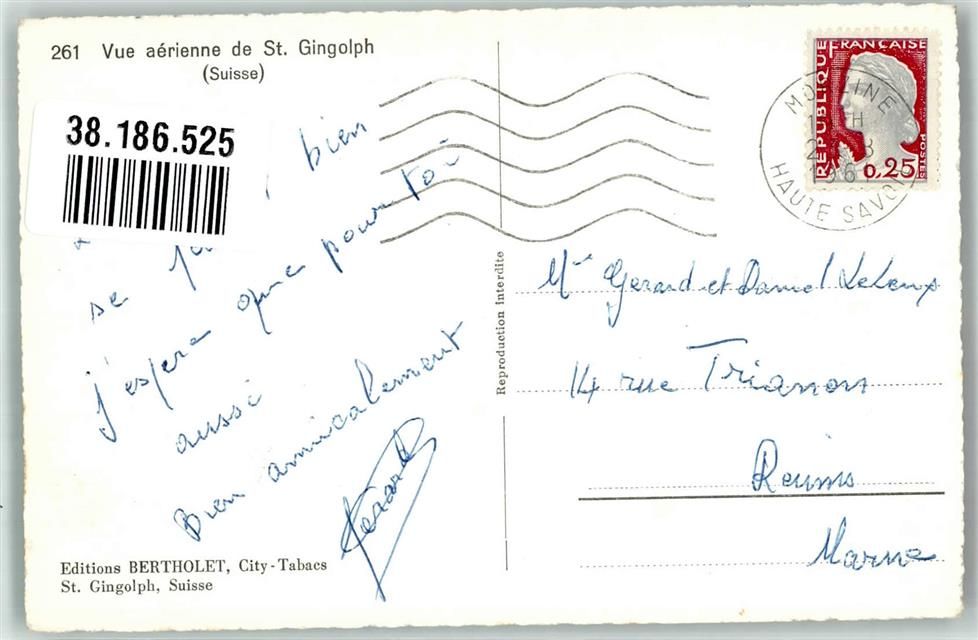 261 Vue aérienne de St. Gingolph
(Suisse)
38.186.525
bien
se
j'espère que pour toi
aussi
Bien amicalement
Gérard
Editions BERTHOLET, City-Tabacs
St. Gingolph, Suisse
Reproduction interdite
REPUBLIQUE FRANÇAISE
POSTES
0,25
HAUTE SAVOIE
Gerard et Daniel Leleux
14 rue Trianon
Reims
Marne